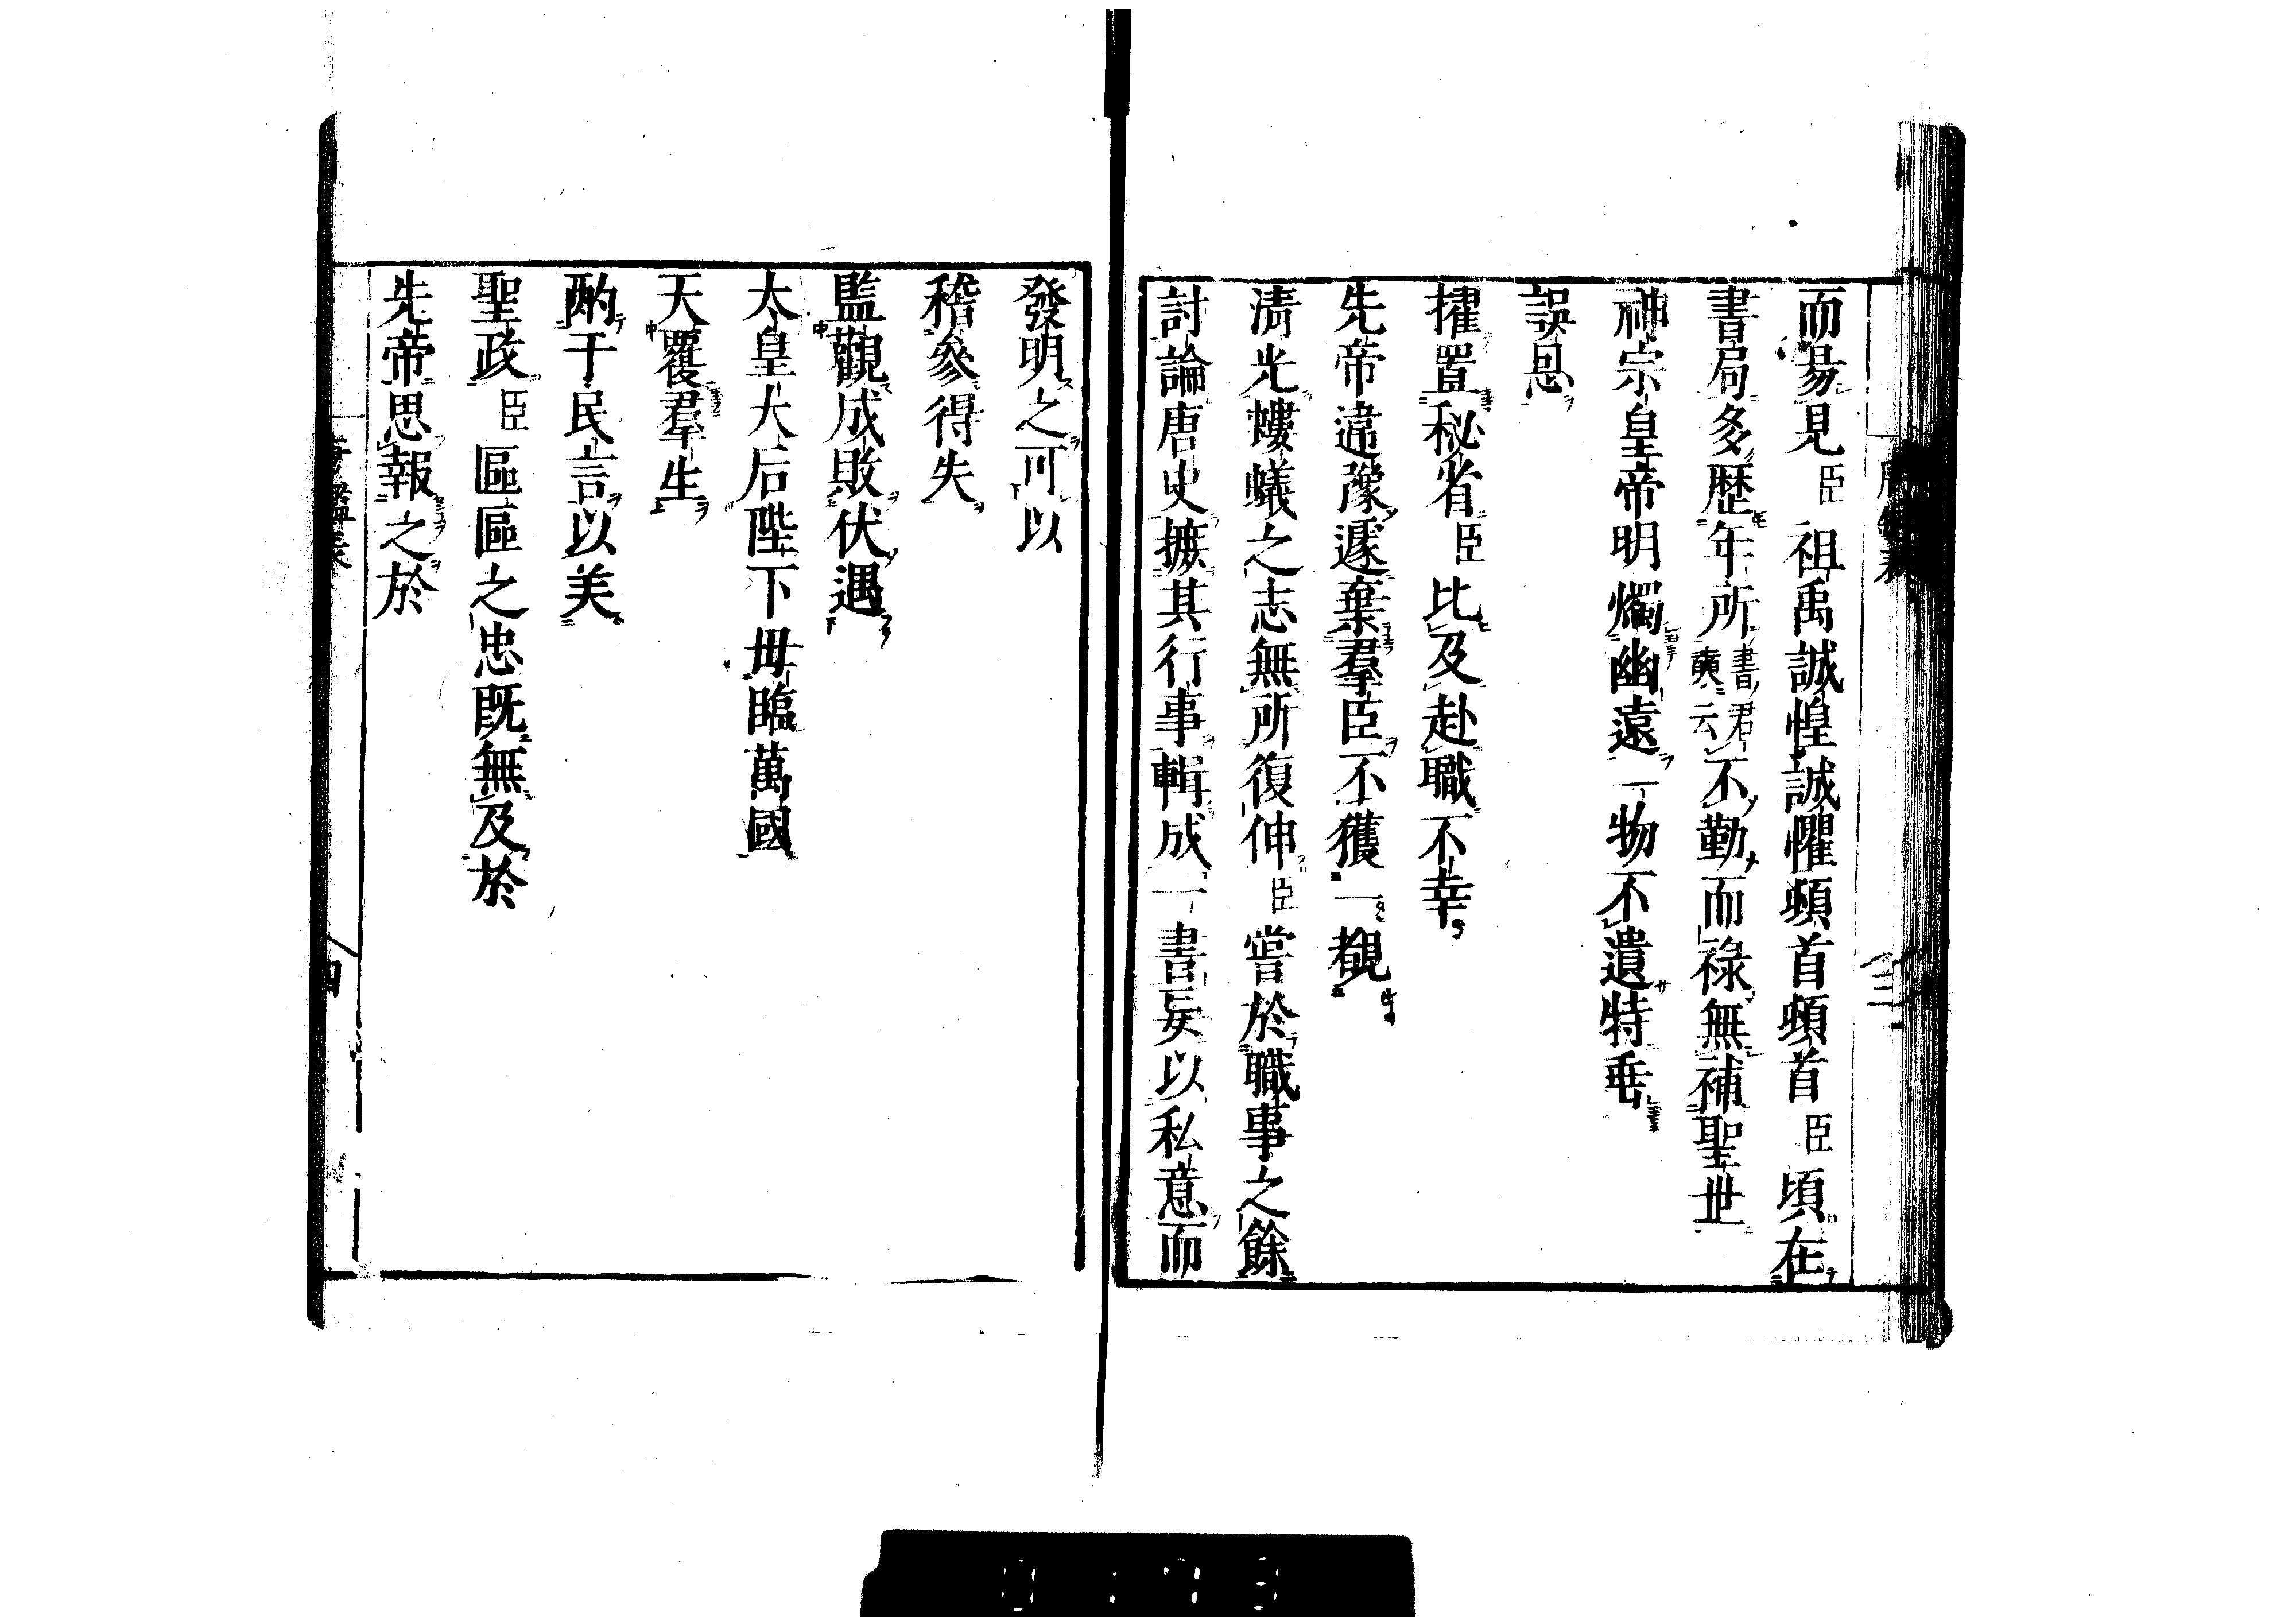 而易見臣祖禹誠惶誠懼頓首頓首臣頃在
書局多歴年所書君奭云不勤而祿無補聖世
神宗皇帝明燭幽遠一物不遺特垂
誤恩
擢置秘省臣比及赴職不幸
先帝違豫遽棄羣臣不獲一覩
淸光螻蟻之志無所復伸臣嘗於職事之餘
討論唐史摭其行事輯成一書妄以私意而
發明之可以
稽參得失
監觀成敗伏遇
太皇太后陛下毋臨萬國
天覆羣生
酌于民言以美
聖政臣區區之忠既無及於
先帝思報之於